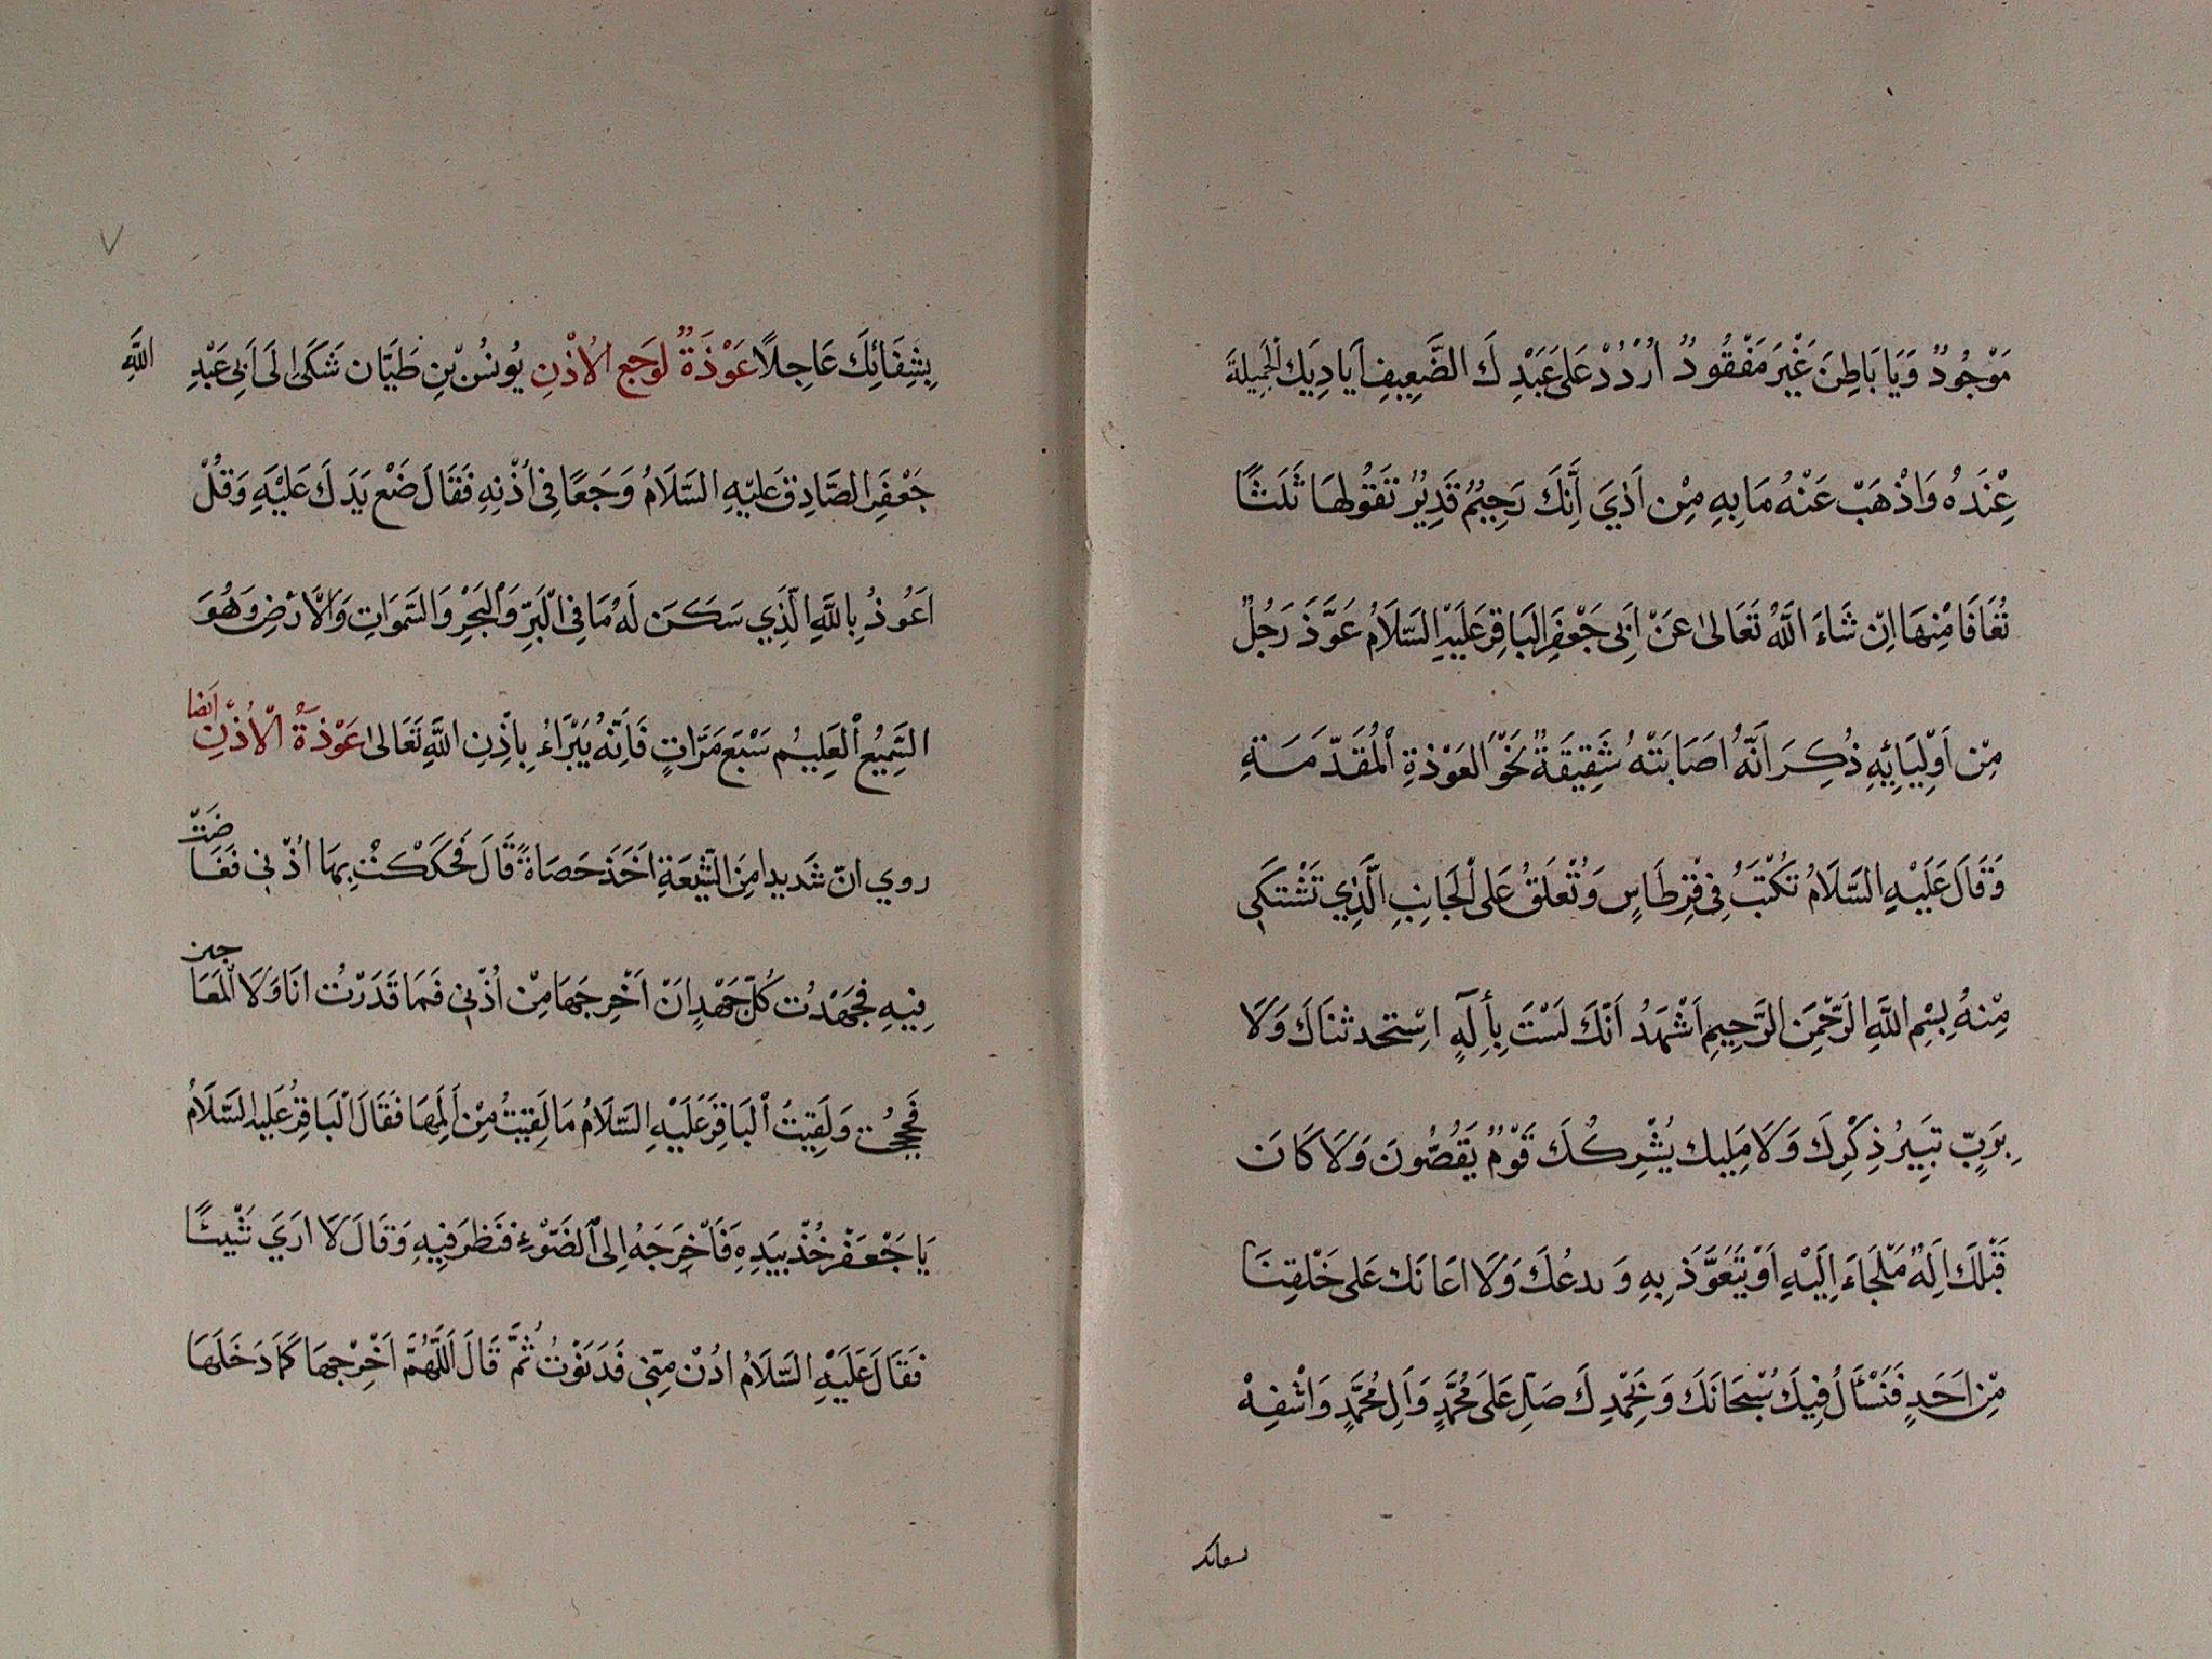 مَوْجُودٌ وَيَا بَاطِنَ غَيْرَ مَفْقُودٌ اُرْدُدْ عَلَى عَبْدِكَ الضَّعِيفِ اَيَادِيَكَ الْجَمِيلَةَ
عِنْدَهُ وَاذْهَبْ عَنْهُ مَا بِهِ مِنْ اَذًي اِنَّكَ رَحِيمٌ قَدِيرٌ تَقُولُهَا ثَلَثًا
تُعَافَا مِنْهَا اِنْ شَاءَ اللَّهُ تَعَالىٰ عَنْ اَبِي جَعْفَرِ الْبَاقِرِ عَلَيْهِ السَّلَامُ عَوَّذَ رَجُلٌ
مِنْ اَوْلِيَائِهِ ذُكِرَ اَنَّهُ اَصَابَتْهُ شَقِيقَةٌ نَحْوَ الْعَوْذَةِ الْمُقَدَّمَةِ
وَقَالَ عَلَيْهِ السَّلَامُ تَكْتُبُ فِي قِرْطَاسٍ وَتُعَلَّقُ عَلَى الْجَانِبِ الَّذِي تَشْتَكِي
مِنْهُ بِسْمِ اللَّهِ الرَّحْمَنِ الرَّحِيمِ اَشْهَدُ اَنَّكَ لَسْتَ بِأِلَهٍ اِسْتحدثنَاكَ وَلَا
بِرَبٍّ تَبِيرُ ذِكْرِكَ وَلَا مَلِيك يُشْرِكُكَ قَوْمٌ يَقُصُّونَ وَلَا كَانَ
قَبْلَكَ اِلَهٌ مَلْجَاءَ اِلَيْهِ اَوْ يَتَعَوَّذَ بِهِ وَ ىدعُكَ وَلَا اَعَانَكَ عَلَى خَلْقِنَا
مِنْ اَحَدٍ فَنَسْأَلُ فِيكَ سُبْحَانَكَ وَبِحَمْدِكَ صَلِّ عَلَى مُحَمَّدٍ وَاَلِ مُحَمَّدٍ وَاشْفِهْ
بِشِفَائِكَ عَاجِلًا عَوْذَةٌ لِوَجَعِ الْاُذْنِ يُونُسُ بْنِ طَيَّان شَكَىٰ اِلَى اَبِي عَبْدِ اللَّهِ
جَعْفَرِ الصَّادِقِ عَلَيْهِ السَّلَامُ وَجَعًا فِي اُذْنِهِ فَقَالَ ضَعْ يَدَكَ عَلَيْهِ وَقُلْ
اَعُوذُ بِاللَّهِ الَّذِي سَكَنَ لَهُ مَا فِي الْبَرِّ وَالْبَحْرِ وَالسَّمَوَاتِ وَالْاَرْضِ وَهُوَ
السَّمِيعُ الْعَلِيمُ سَبْعَ مَرَّاتٍ فَاِنَّهُ يَبْرَاءُ بِاِذْنِ اللَّهِ تَعَالىٰ عَوْذَةُ الْاُذْنِ اَيضا
روي انّ شَدِيدا مِنَ الشِّيعَةِ اَخَذَ حَصَاةً قَالَ فَحَكَكْتُ بِهَا اُذْنِي فَغَاضَتْ
فِيهِ فَجَهَدْتُ كُلَّ جَهْدٍ اَنْ اَخْرِجَهَا مِنْ اُذْنِي فَمَا قَدَرْتُ اَنَا وَلَا الْمَعَاجين
فَحَجِجْتُ وَلَقِيتُ الْبَاقِرَ عَلَيْهِ السَّلَامُ مَا لَقِيتُ مِنْ اَلَمِهَا فَقَالَ الْبَاقِرُ عَلَيه السَّلَامُ
يَا جَعْفَرْ خُذْ بِيَدِهِ فَاَخْرَجَهُ اِلَى الضَّوْءِ فَنَظَرَ فِيهِ وَقَالَ لَا اَرَيَ شَيْئًا
فَقَالَ عَلَيْهِ السَّلَامُ ادْنُ مِنِّي فَدَنَوْتُ ثُمَّ قَالَ اَللَّهُمَّ اَخْرِجهَا كَمَا دَخَلَهَا